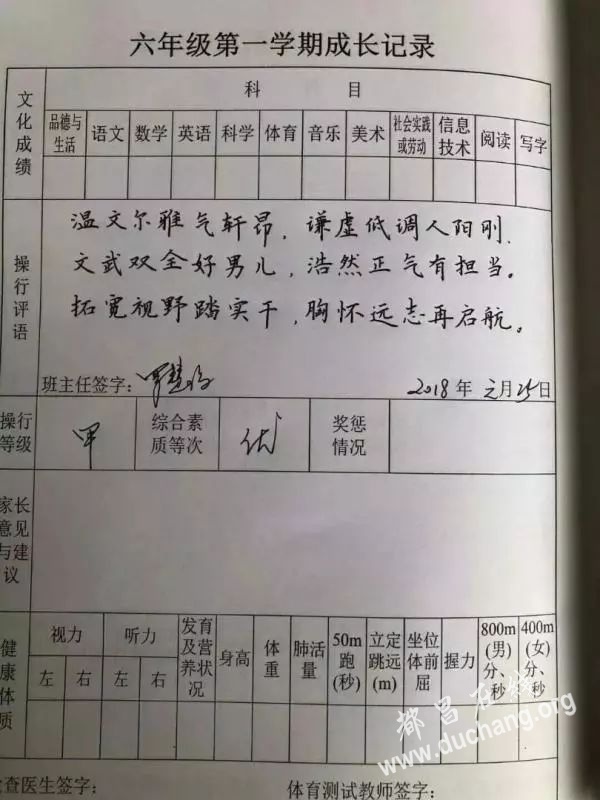 六年级第一学期成长记录
文化成绩
科 目
品德与生活 语文 数学 英语 科学 体育 音乐 美术 社会实践或劳动 信息技术 阅读 写字
操行评语
温文尔雅气轩昂，谦虚低调人阳刚。
文武双全好男儿，浩然正气有担当。
拓宽视野踏实干，胸怀远志再启航。
班主任签字：
2018年元月25日
操行等级 甲 综合素质等次 优 奖惩情况
家长意见与建议
健康体质
视力 听力 发育及营养状况 身高 体重 肺活量 50m跑(秒) 立定跳远(m) 坐位体前屈 握力 800m(男)分、秒 400m(女)分、秒
左 右 左 右
都昌在线
www.duchang.org
查医生签字： 体育测试教师签字：